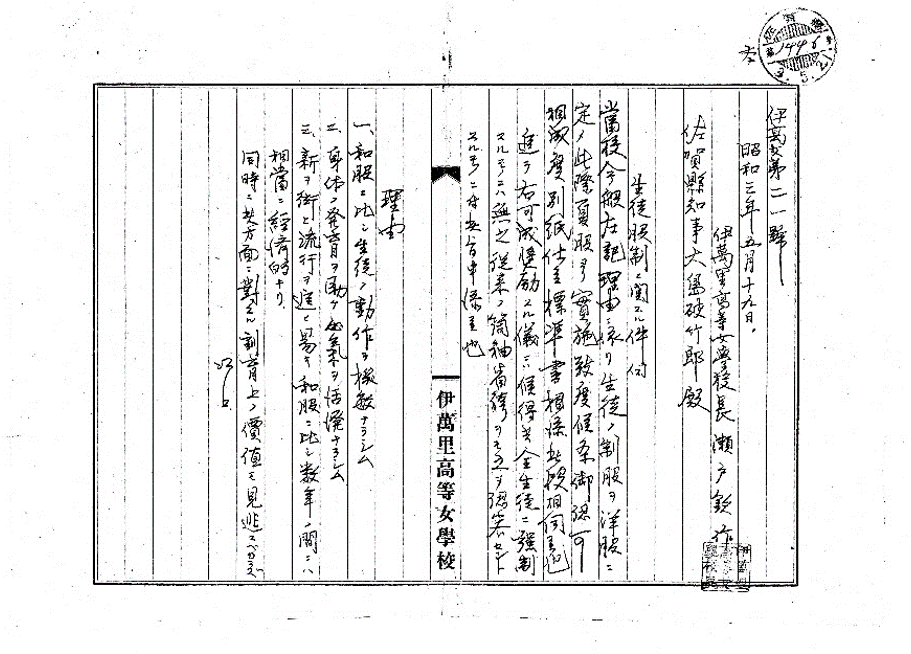 伊萬女第二一號
昭和三年五月十九日
伊萬里高等女學校長 瀬戸
佐賀縣知事大島破竹郎殿
生徒服制ニ関スル件伺
當校今般左記理由ニ依リ生徒ノ制服ヲ洋服ニ
定メ此際夏服ヨリ實施致度候条御認可
相成度別紙仕立標準書相添此段相伺候也
追テ右可成奨励スル儀ニハ候得共全生徒ニ強制
スルモノニ無之従来ノ筒袖着袴
理由
一、和服ニ比シ生徒ノ動作ヲ機敏ナラシム
二、身体ノ発育ヲ助ケ元氣ヲ活溌ナラシム
三、新ヲ衒ヒ流行ヲ追ヒ易キ和服ニ比シ数年ノ間ニハ
相當ニ経済的ナリ
同時ニ此方面ニ對スル訓育上ノ價値モ見逃スベカラズ
以上
伊萬里高等女學校
佐賀縣
第1446号
3.5.21